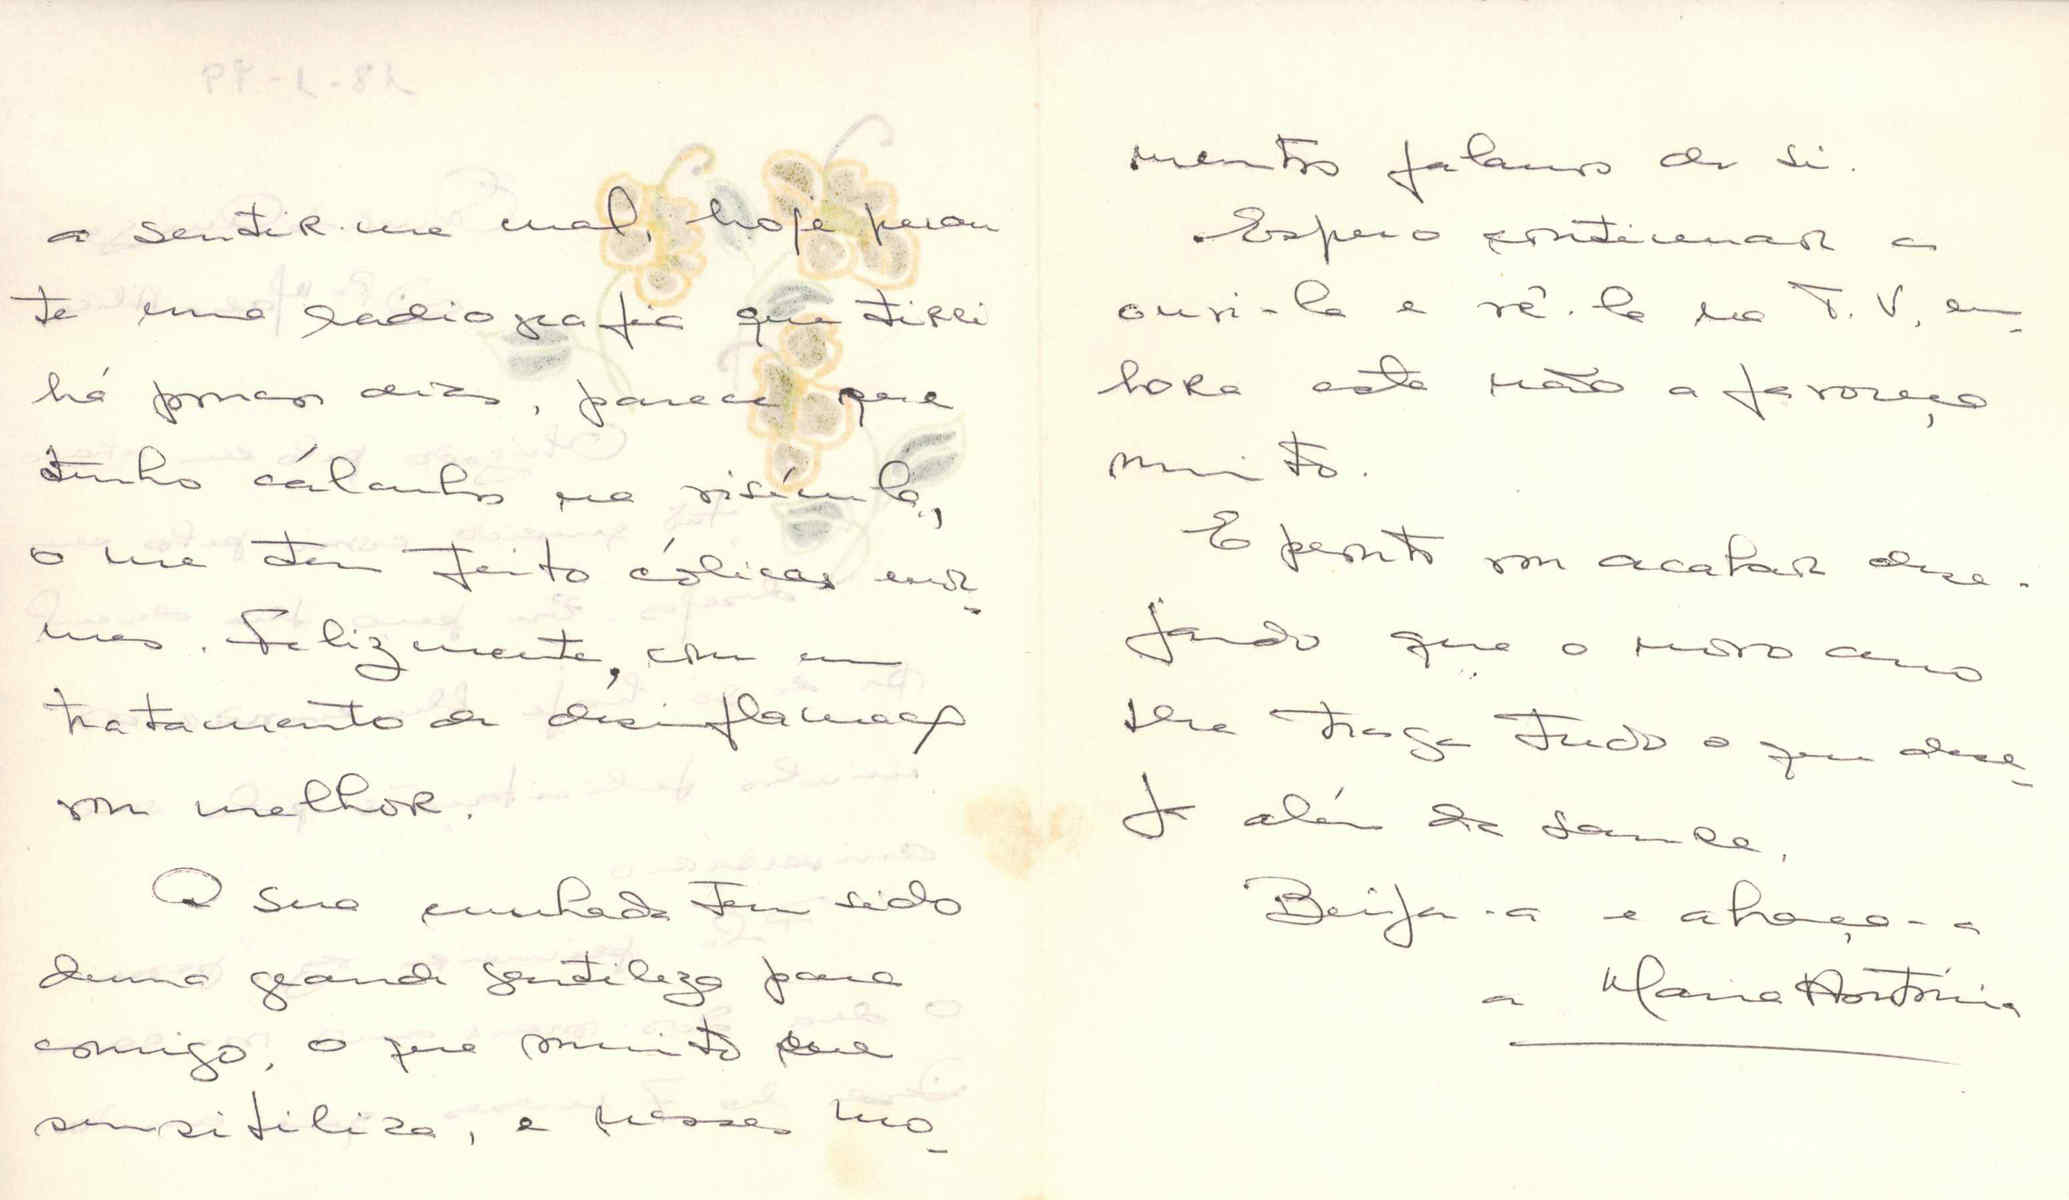 a sentir-me mal, hoje peran
te uma radiografia que tirei
há poucos dias, parece que
tenho cálculos na vesícula,
o me tem feito cólicas enor-
mes. Felizmente, com um
tratamento de desinflamaç
vou melhor.
A sua cunhada tem sido
duma grande gentileza para
comigo, o que muito me
sensibiliza, e nesses mo-
mentos falamos de si.
Espero continuar a
ouvi-la e vê-la na T.V. em-
bora esta não a favoreça
muito.
E pronto vou acabar dese-
jando que o novo ano
lhe traga tudo o que dese-
ja além da saúde.
Beija-a e abraça-a
a Maria Antónia
18-1-99